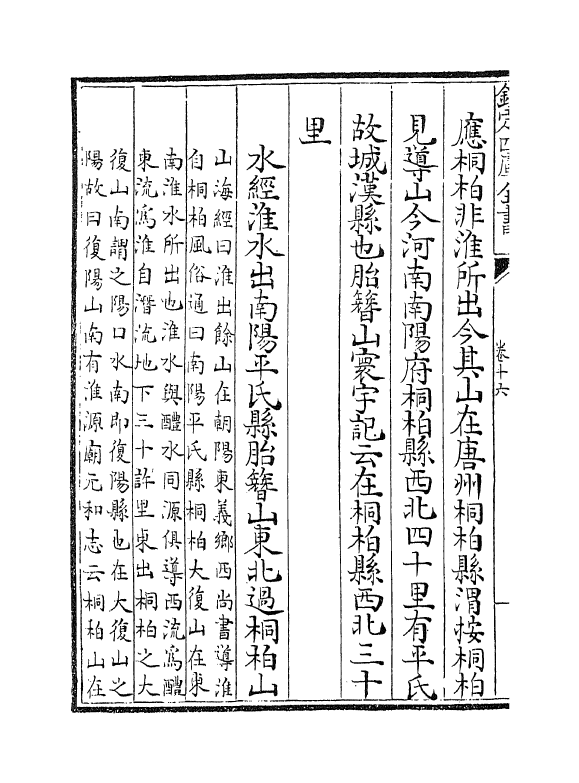 欽定四庫全書
卷十六
應桐柏非淮所出今其山在唐州桐柏縣渭按桐柏
見導山今河南南陽府桐柏縣西北四十里有平氏
故城漢縣也胎簪山寰宇記云在桐柏縣西北三十
里
水經淮水出南陽平氏縣胎簪山東北過桐柏山
山海經曰淮出餘山在朝陽東義鄉西尚書導淮
自桐柏風俗通曰南陽平氏縣桐柏大復山在東
南淮水所出也淮水與醴水同源俱導西流為醴
東流為淮自潛流地下三十許里東出桐柏之大
復山南謂之陽口水南即復陽縣也在大復山之
陽故曰復陽山南有淮源廟元和志云桐柏山在